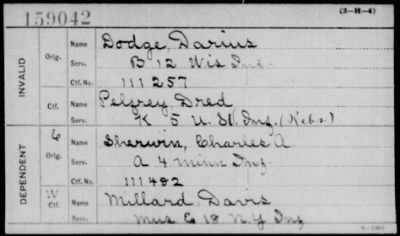 159042 (3-H-4)
INVALID
Orig. Name Dodge, Darius
Serv. B 12 Wis Inf.
Ctf. No. 111257
Ctf. Name Pelfrey Dred
Serv. K 5 U.S. Inf. (Rebs.)
DEPENDENT
C Orig. Name Sherwin, Charles A
Serv. A 4 Minn Inf.
Ctf. No. 111482
W Ctf. Name Millard Davis
Serv. Mus E 18 N.Y Inf